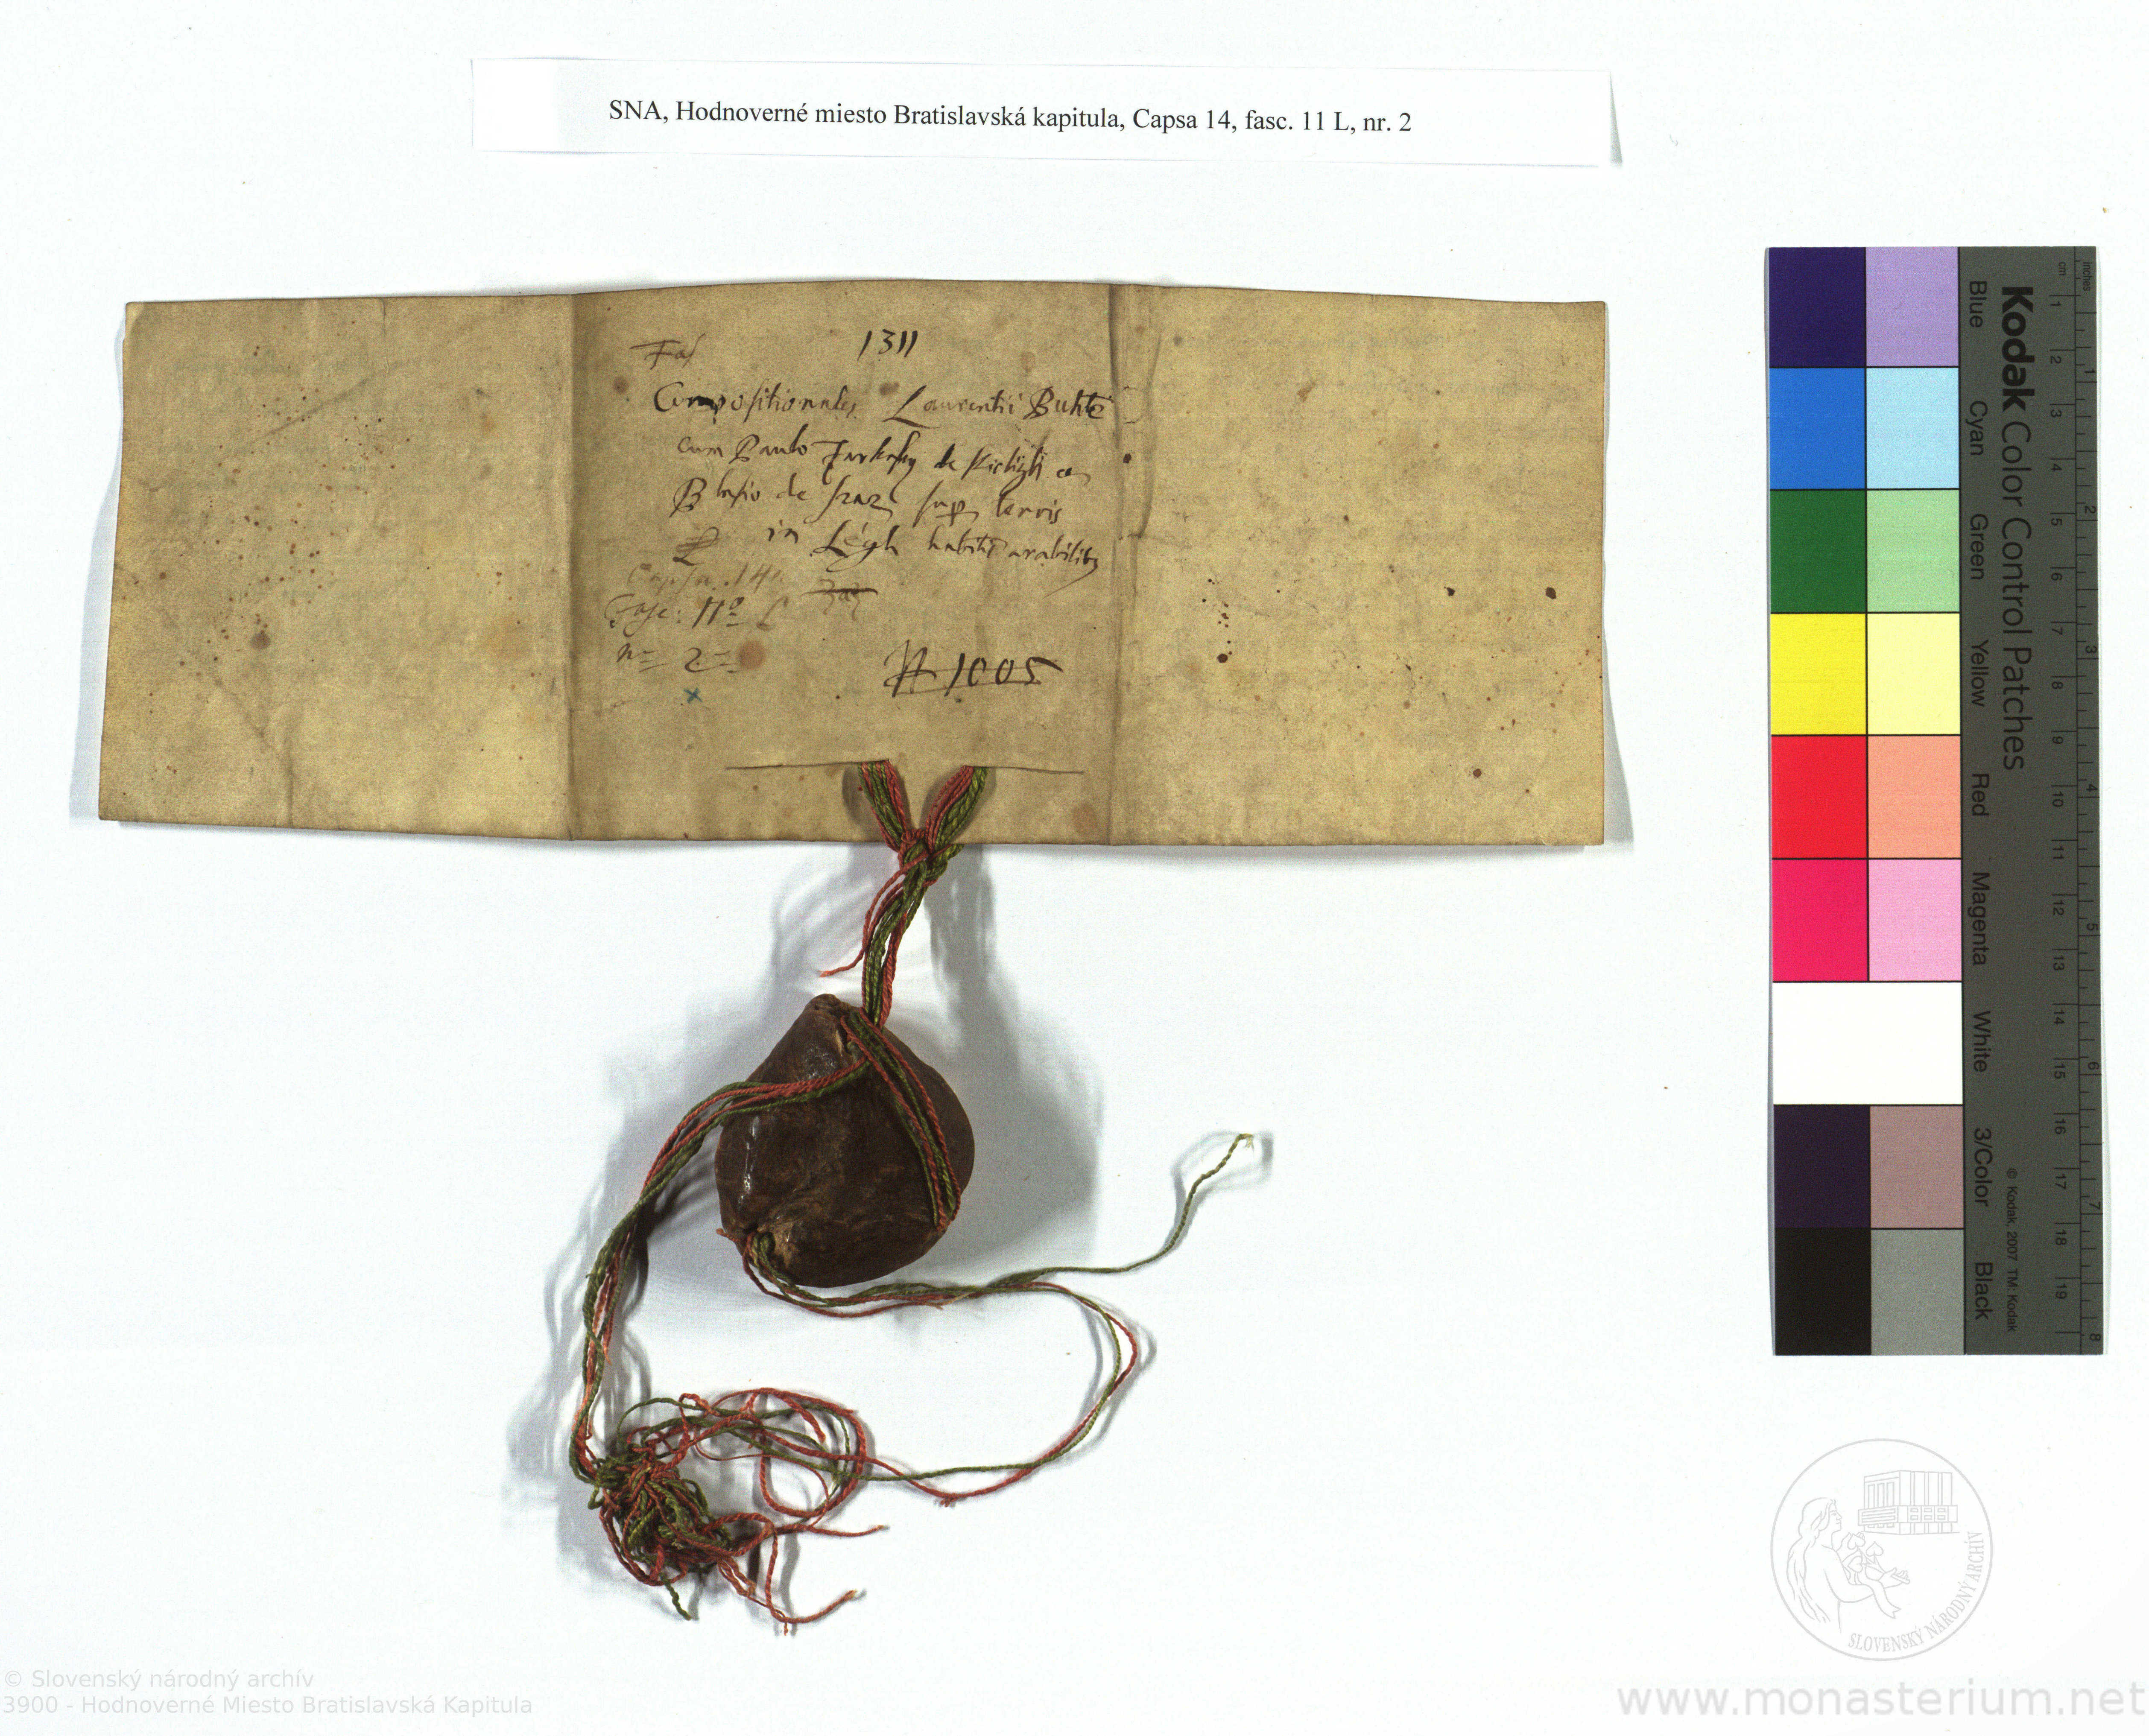 SNA, Hodnoverné miesto Bratislavská kapitula, Capsa 14, fasc. 11 L, nr. 2
1311
Fas
Compositionales Laurentii
cum Paulo de
Blasio de Szaz sup terris
in Légh arabilibq
Capsa. 14a
Fasc: 11º L
n= 2=
1005
Kodak Color Control Patches
Blue Cyan Green Yellow Red Magenta White 3/Color Black
© Kodak, 2007 TM: Kodak
cm 1 2 3 4 5 6 7 8 9 10 11 12 13 14 15 16 17 18 19
inches 1 2 3 4 5 6 7 8
SLOVENSKÝ NÁRODNÝ ARCHÍV
© Slovenský národný archív
3900 - Hodnoverné Miesto Bratislavská Kapitula
www.monasterium.net